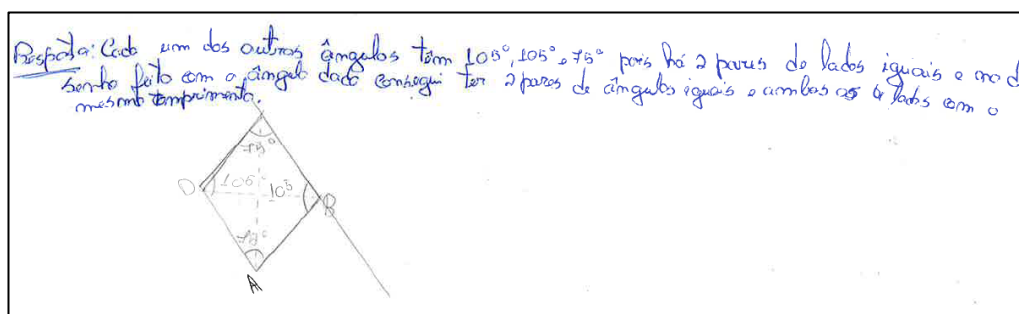 Resposta: Cada um dos outros ângulos têm 105°, 105° e 75° pois há 2 pares de lados iguais e no de
senho feito com o ângulo dado consegui ter 2 pares de ângulos iguais e ambos os 4 lados com o
mesmo comprimento.
75°
D 105° 105 B
75°
A